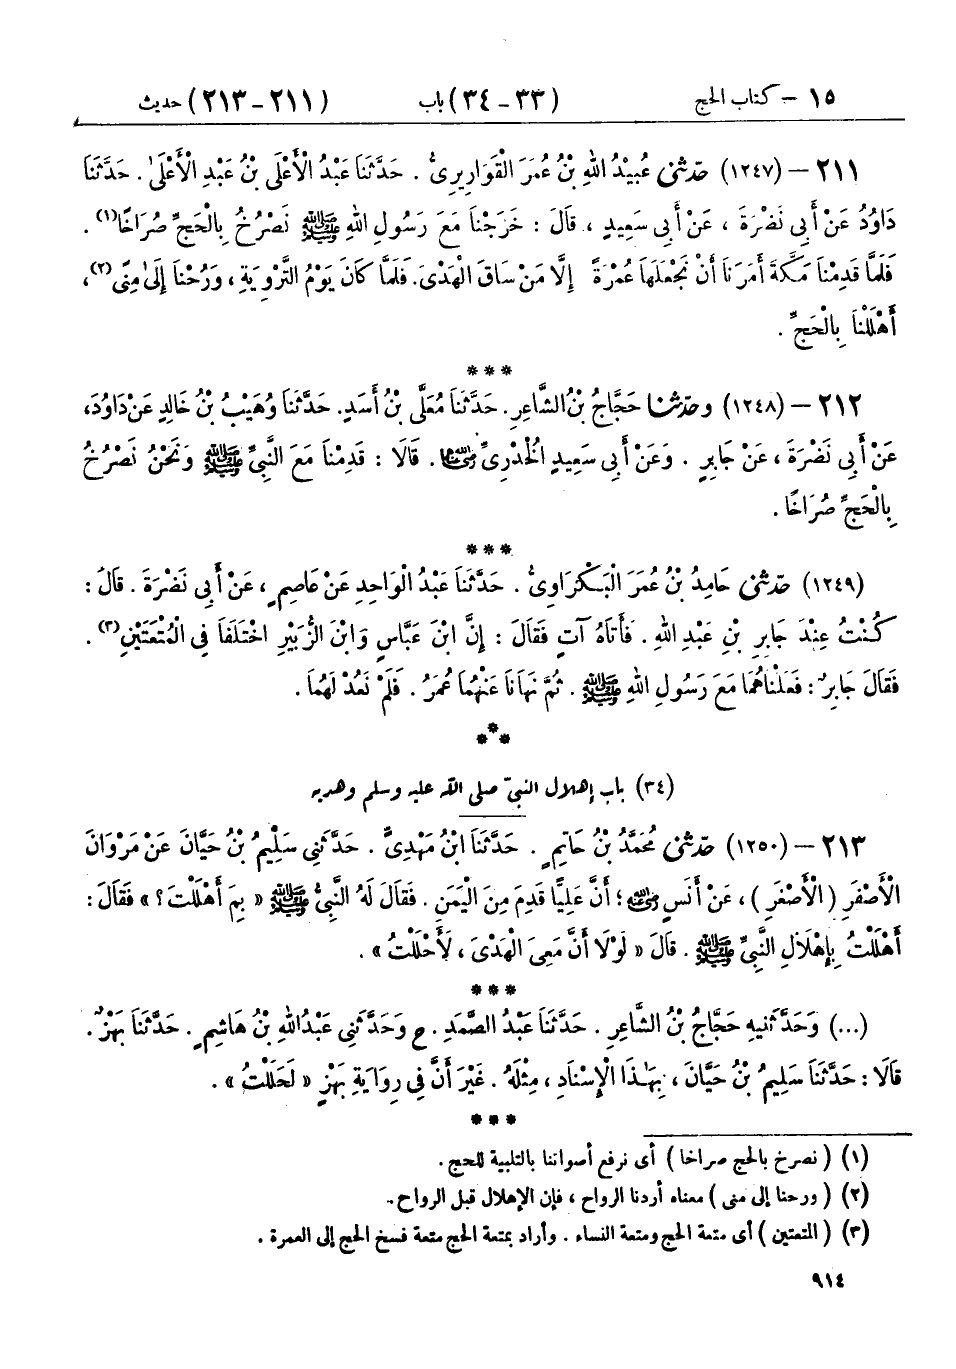 ١٥ – كتاب الحج (٣٣-٣٤) باب (٢١١-٢١٣) حديث
٢١١ – (١٢٤٧) حَدَّثَنِي عُبَيْدُ اللهِ بْنُ عُمَرَ الْقَوَارِيرِىُّ . حَدَّثَنَا عَبْدُ الْأَعْلَى بْنُ عَبْدِ الْأَعْلَىٰ . حَدَّثَنَا
دَاوُدُ عَنْ أَبِى نَضْرَةَ ، عَنْ أَبِى سَعِيدٍ ، قَالَ : خَرَجْنَا مَعَ رَسُولِ اللهِ ﷺ نَصْرُخُ بِالْحَجِّ صُرَاخًا(١) .
فَلَمَّا قَدِمْنَا مَكَّةَ أَمَرَنَا أَنْ نَجْعَلَهَا عُمْرَةً إِلَّا مَنْ سَاقَ الْهَدْىَ. فَلَمَّا كَانَ يَوْمُ التَّرْوِيَةِ ، وَرُحْنَا إِلَىٰ مِنًى(٢) ،
أَهْلَلْنَا بِالْحَجِّ .
***
٢١٢ – (١٢٤٨) وحَدَّثَنَا حَجَّاجُ بْنُ الشَّاعِرِ. حَدَّثَنَا مُعَلَّى بْنُ أَسَدٍ. حَدَّثَنَا وُهَيْبُ بْنُ خَالِدٍ عَنْ دَاوُدَ،
عَنْ أَبِى نَضْرَةَ ، عَنْ جَابِرٍ . وَعَنْ أَبِى سَعِيدٍ الْخُدْرِىِّ رضى الله عنهما . قَالَا : قَدِمْنَا مَعَ النَّبِىِّ ﷺ وَنَحْنُ نَصْرُخُ
بِالْحَجِّ صُرَاخًا .
***
(١٢٤٩) حَدَّثَنِي حَامِدُ بْنُ عُمَرَ الْبَكْرَاوِىُّ . حَدَّثَنَا عَبْدُ الْوَاحِدِ عَنْ عَاصِمٍ ، عَنْ أَبِى نَضْرَةَ . قَالَ :
كُنْتُ عِنْدَ جَابِرِ بْنِ عَبْدِ اللهِ . فَأَتَاهُ آتٍ فَقَالَ : إِنَّ ابْنَ عَبَّاسٍ وَابْنَ الزُّبَيْرِ اخْتَلَفَا فِى الْمُتْعَتَيْنِ(٣) .
فَقَالَ جَابِرٌ : فَعَلْنَاهُمَا مَعَ رَسُولِ اللهِ ﷺ . ثُمَّ نَهَانَا عَنْهُمَا عُمَرُ . فَلَمْ نَعُدْ لَهُمَا .
***
(٣٤) باب إهلال النبىّ صلى الله عليه وسلم وهديه
٢١٣ – (١٢٥٠) حَدَّثَنِي مُحَمَّدُ بْنُ حَاتِمٍ . حَدَّثَنَا ابْنُ مَهْدِىٍّ . حَدَّثَنِى سَلِيمُ بْنُ حَيَّانَ عَنْ مَرْوَانَ
الْأَصْفَرِ ( الْأَصْغَرِ ) ، عَنْ أَنَسٍ رضى الله عنه ؛ أَنَّ عَلِيًّا قَدِمَ مِنَ الْيَمَنِ . فَقَالَ لَهُ النَّبِىُّ ﷺ « بِمَ أَهْلَلْتَ؟ » فَقَالَ :
أَهْلَلْتُ بِإِهْلَالِ النَّبِىِّ ﷺ . قَالَ « لَوْلَا أَنَّ مَعِىَ الْهَدْىَ ، لَأَحْلَلْتُ » .
***
(...) وَحَدَّثَنِيهِ حَجَّاجُ بْنُ الشَّاعِرِ . حَدَّثَنَا عَبْدُ الصَّمَدِ . ح وَحَدَّثَنِى عَبْدُ اللهِ بْنُ هَاشِمٍ . حَدَّثَنَا بَهْزٌ .
قَالَا : حَدَّثَنَا سَلِيمُ بْنُ حَيَّانَ ، بِهَٰذَا الْإِسْنَادِ ، مِثْلَهُ . غَيْرَ أَنَّ فِى رِوَايَةِ بَهْزٍ « لَحَلَلْتُ » .
***
(١) ( نصرخ بالحج صراخا ) أى نرفع أصواتنا بالتلبية للحج .
(٢) ( ورحنا إلى منى ) معناه أردنا الرواح ، فإن الإهلال قبل الرواح .
(٣) ( المتعتين ) أى متعة الحج ومتعة النساء . وأراد بمتعة الحج متعة فسخ الحج إلى العمرة .
٩١٤